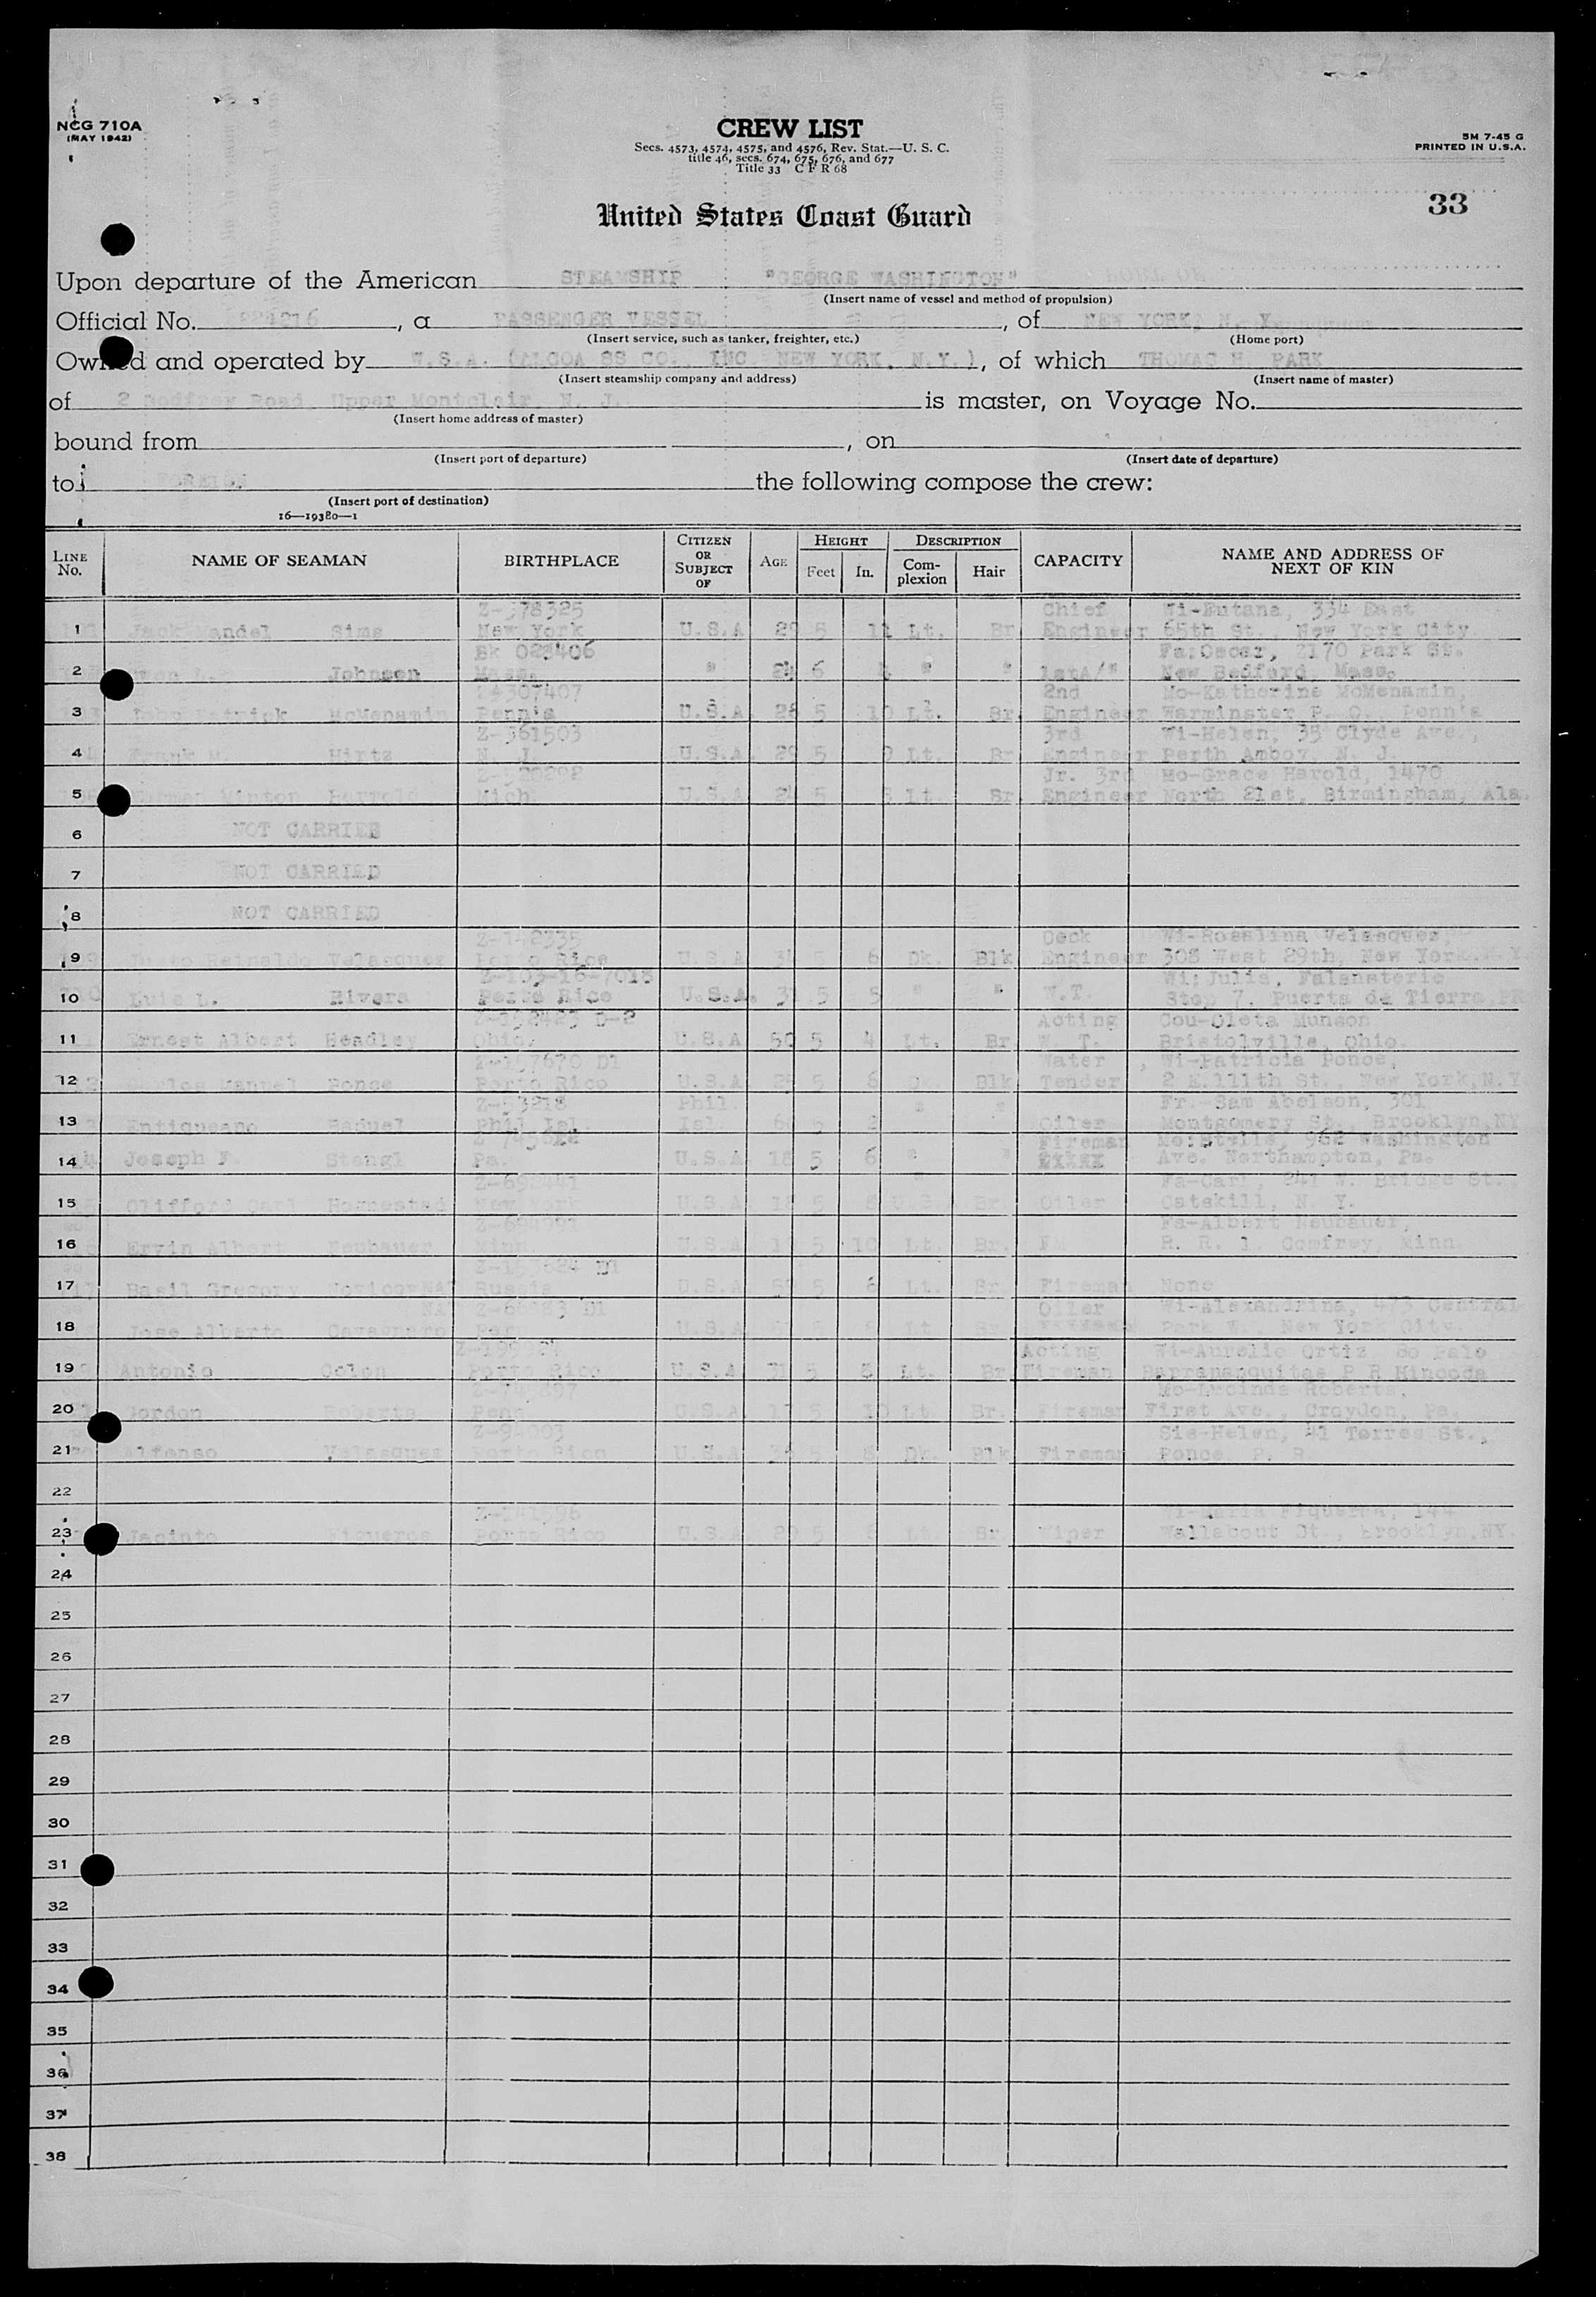 NCG 710A
(MAY 1942)
CREW LIST
Secs. 4573, 4574, 4575, and 4576, Rev. Stat.—U. S. C.
title 46, secs. 674, 675, 676, and 677
Title 33 C F R 68
5M 7-45 G
PRINTED IN U.S.A.
United States Coast Guard
33
Upon departure of the American STEAMSHIP "GEORGE WASHINGTON"
(Insert name of vessel and method of propulsion)
Official No. 224216, a PASSENGER VESSEL, of NEW YORK, N. Y.
(Insert service, such as tanker, freighter, etc.) (Home port)
Owned and operated by W.S.A. (ALCOA SS CO., INC. NEW YORK, N.Y.), of which THOMAS H. PARK
(Insert steamship company and address) (Insert name of master)
of 2 Godfrey Road, Upper Montclair, N. J. is master, on Voyage No.
(Insert home address of master)
bound from , on
(Insert port of departure) (Insert date of departure)
to FOREIGN the following compose the crew:
(Insert port of destination)
16—19380—1
LINE No. NAME OF SEAMAN BIRTHPLACE CITIZEN OR SUBJECT OF AGE HEIGHT Feet In. DESCRIPTION Complexion Hair CAPACITY NAME AND ADDRESS OF NEXT OF KIN
Z-378325 Chief Wi-Eutana, 334 East
1 Jack Vandel Sims New York U.S.A 29 5 11 Lt. Br Engineer 65th St., New York City
Bk 023406 Fa:Oscar, 2170 Park St.
2 Johnson Mass. " 24 6 4 " " 1stA/" New Bedford, Mass.
Z-307407 2nd Mo-Katherine McMenamin,
3 John Patrick McMenamin Penn's U.S.A. 28 5 10 Lt. Br. Engineer Warminster P. O., Penn's
Z-361503 3rd Wi-Helen, 35 Clyde Ave.,
4 Frank Hirtz N. J. U.S.A. 29 5 9 Lt. Br Engineer Perth Amboy, N. J.
Jr. 3rd Mo-Grace Harold, 1470
5 Mich. U.S.A 24 5 Lt. Br Engineer North 21st, Birmingham, Ala.
6 NOT CARRIED
7 NOT CARRIED
8 NOT CARRIED
Z-142335 Deck Wi-Rosalina Velasquez,
9 Justo Reinaldo Velasquez Porto Rico U.S.A 34 5 6 Dk. Blk Engineer 308 West 29th, New York N.Y
Z-103-16-7018 Wi:Julia, Falansterie
10 Luis L. Rivera Porto Rico U.S.A. 31 5 5 " " W.T. Stop 7, Puerta de Tierra,PR
D-2 Acting Cou-Oleta Munson
11 Ernest Albert Headley Ohio. U.S.A 60 5 4 Lt. Br W. T. Bristolville, Ohio.
Z-157670 D1 Water Wi-Patricia Ponce,
12 Carlos Manuel Ponce Porto Rico U.S.A 5 6 Dk Blk Tender 2 E.111th St., New York,N.Y
Z-53218 Phil. " " Fr.-Sam Abelson, 301
13 Phil Isl. Isl. 5 2 Oiler Montgomery St., Brooklyn,NY
Fireman Mo:Stella, 962 Washington
14 Joseph F. Stangl Pa. U.S.A. 18 5 6 " " Ave. Northampton, Pa.
Fa-Carl, 241 W. Bridge St.
15 Clifford Carl Hommestad New York U.S.A 18 5 Br. Oiler Catskill, N. Y.
Fa-Albert Neubauer,
16 Ervin Albert Neubauer Minn. U.S.A 5 10 Lt. Br. FM R. R. 1 Comfrey, Minn.
D1
17 Basil Gregory Russia U.S.A 5 6 Lt. Br. Fireman None
NAT D1 Oiler Wi-Alexandrina, 473 Central
18 Jose Alberto U.S.A. 5 Lt Park W., New York City.
Acting Wi-Aurelio Ortiz
19 Antonio Colon Porto Rico U.S.A 31 5 8 Lt. Br Fireman
Mo-Lucinda Roberts,
20 Gordon Roberts Penn. U.S.A. 17 5 10 Lt. Br. Fireman First Ave., Croydon, Pa.
Sis-Helen, 41 Torres St.,
21 Alfonso Velasquez Porto Rico U.S.A 5 8 Dk. Blk Fireman Ponce, P. R.
22
Z-141596 144
23 Jacinto Figueroa Porto Rico U.S.A 29 5 Lt. Br. Wiper Wallabout St., Brooklyn,NY.
24
25
26
27
28
29
30
31
32
33
34
35
36
37
38